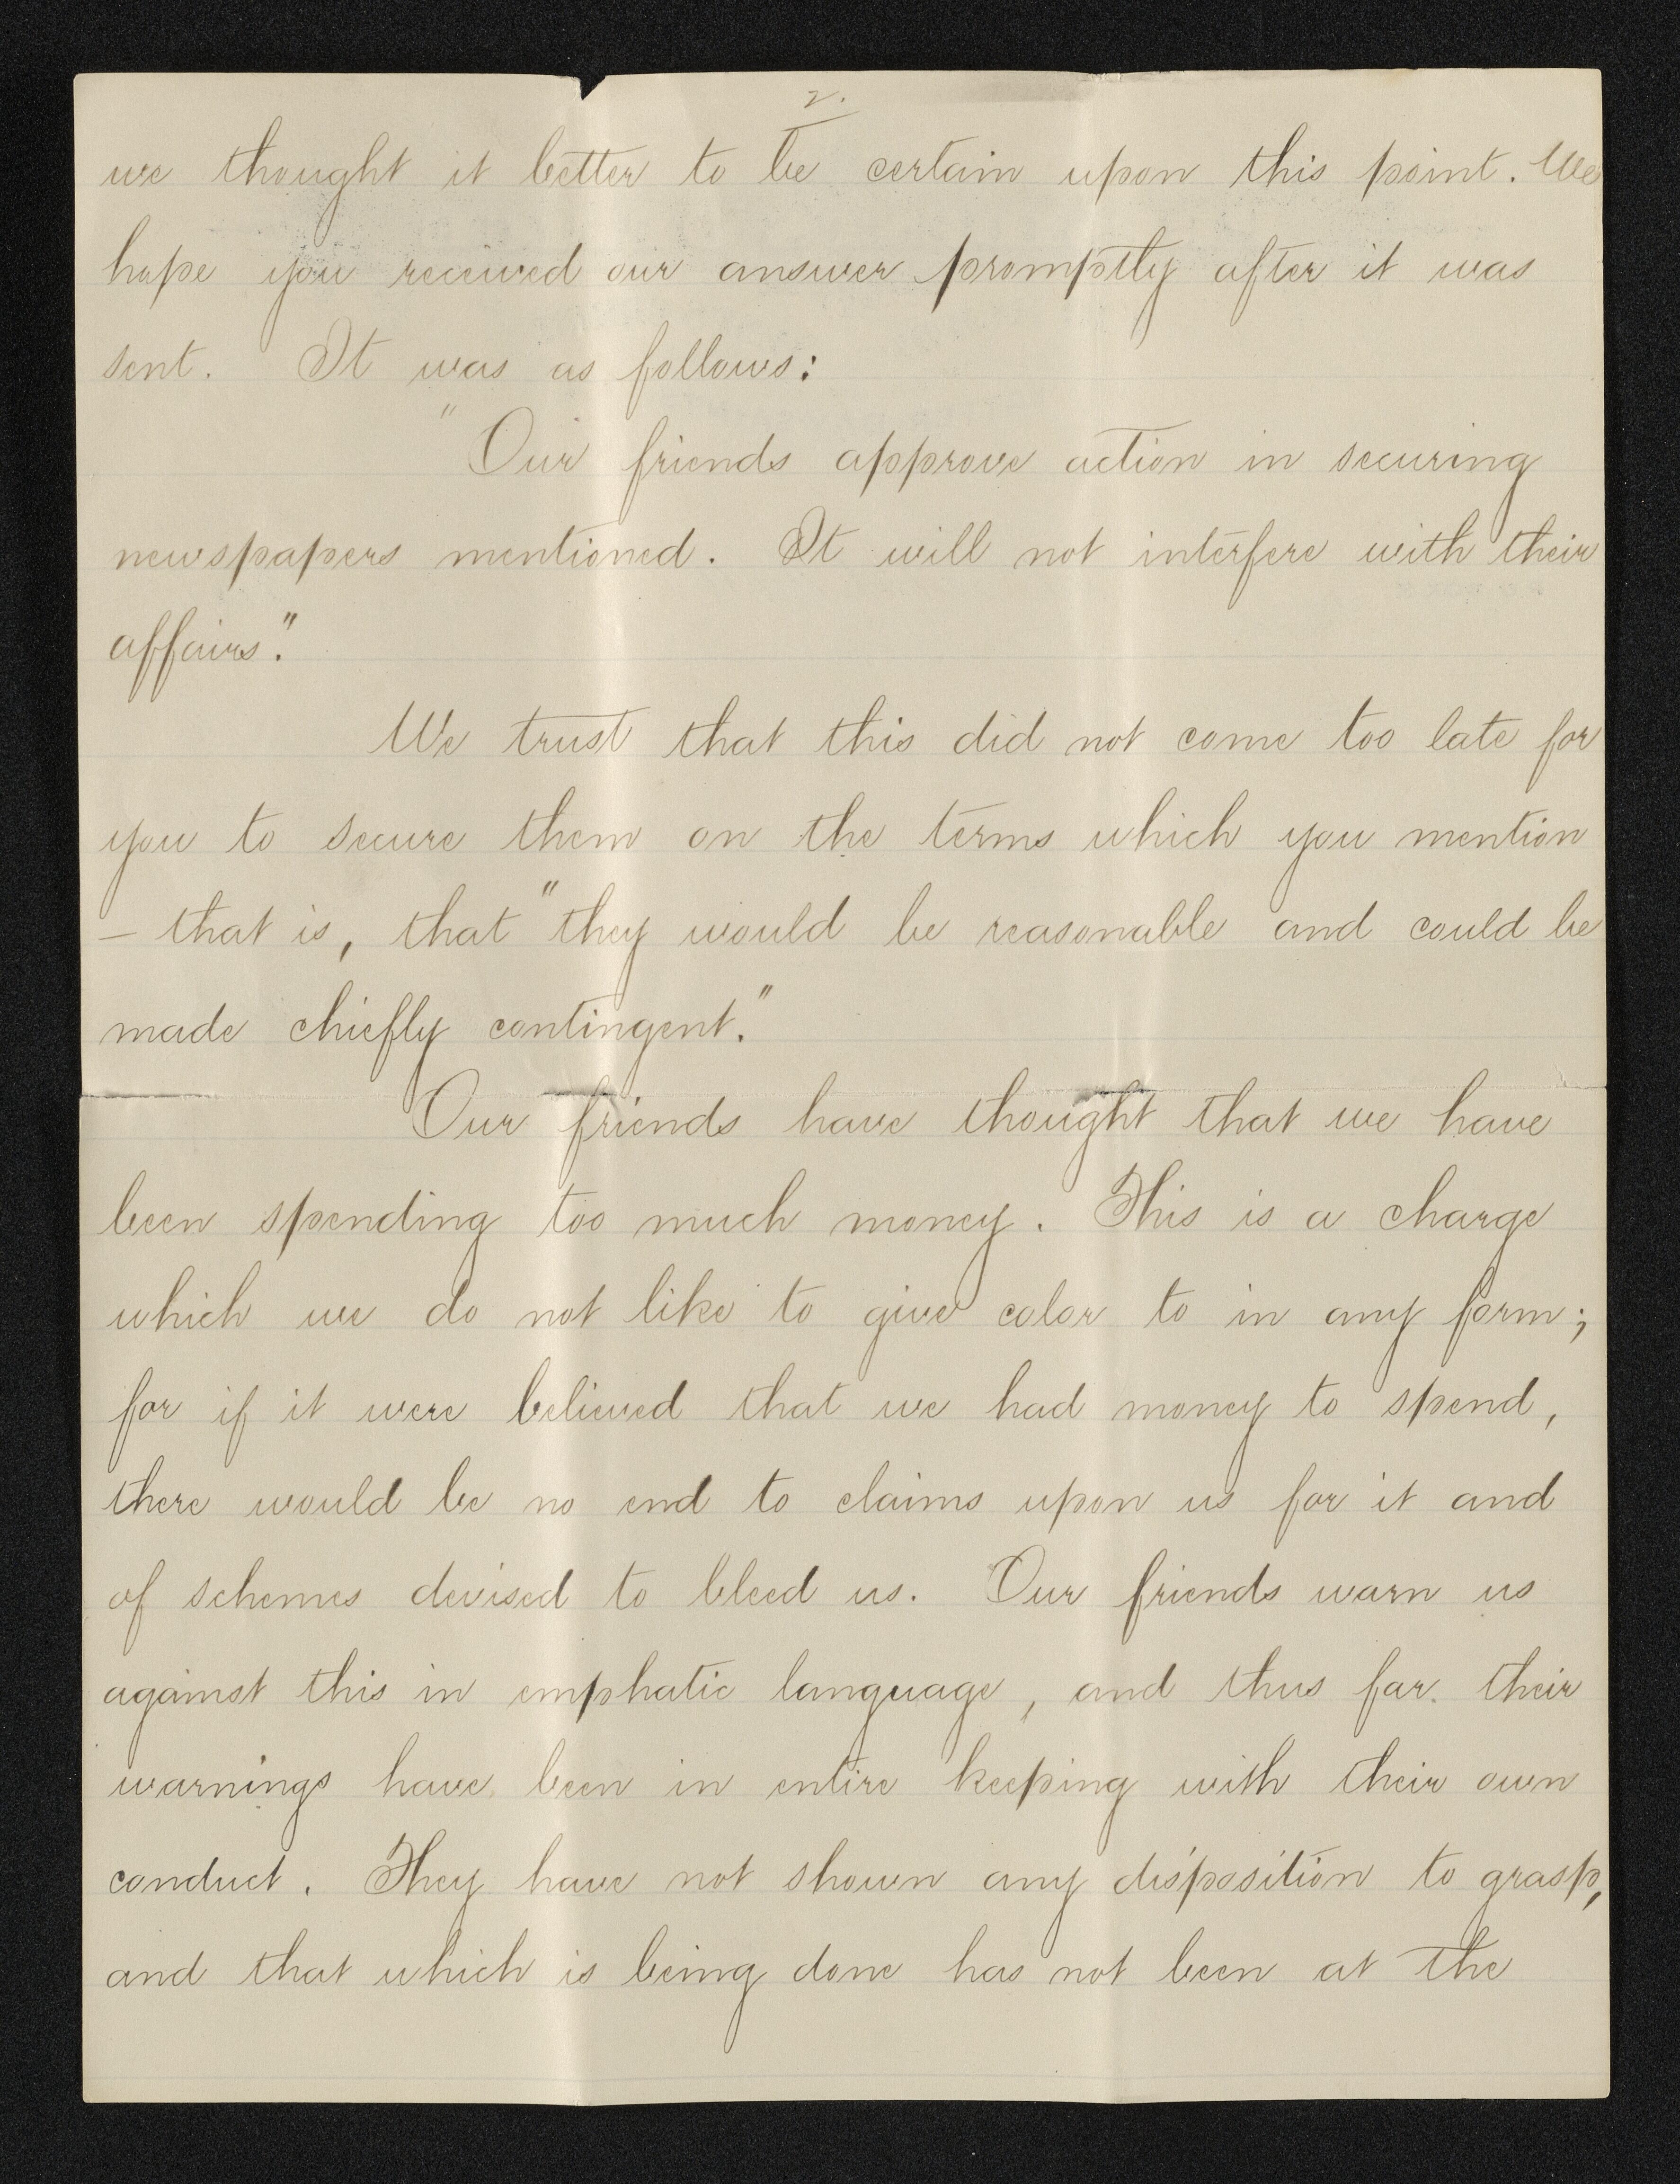 2.
we thought it better to be certain upon this point. We
hope you received our answer promptly after it was
sent. It was as follows:
"Our friends approve action in securing
newspapers mentioned. It will not interfere with their
affairs."
We trust that this did not come too late for
you to secure them on the terms which you mention
— that is, that "they would be reasonable and could be
made chiefly contingent."
Our friends have thought that we have
been spending too much money. This is a charge
which we do not like to give color to in any form;
for if it were believed that we had money to spend,
there would be no end to claims upon us for it and
of schemes devised to bleed us. Our friends warn us
against this in emphatic language, and thus far their
warnings have been in entire keeping with their own
conduct. They have not shown any disposition to grasp,
and that which is being done has not been at the